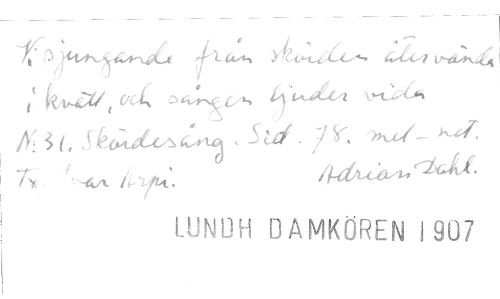 Vi sjungande från skörden återvända
i kväll, och sången ljuder vida
N: 31. Skördesång. Sid. 78. mel-not.
Tx. Ivar Arpi. Adrian Dahl.
LUNDH DAMKÖREN 1907